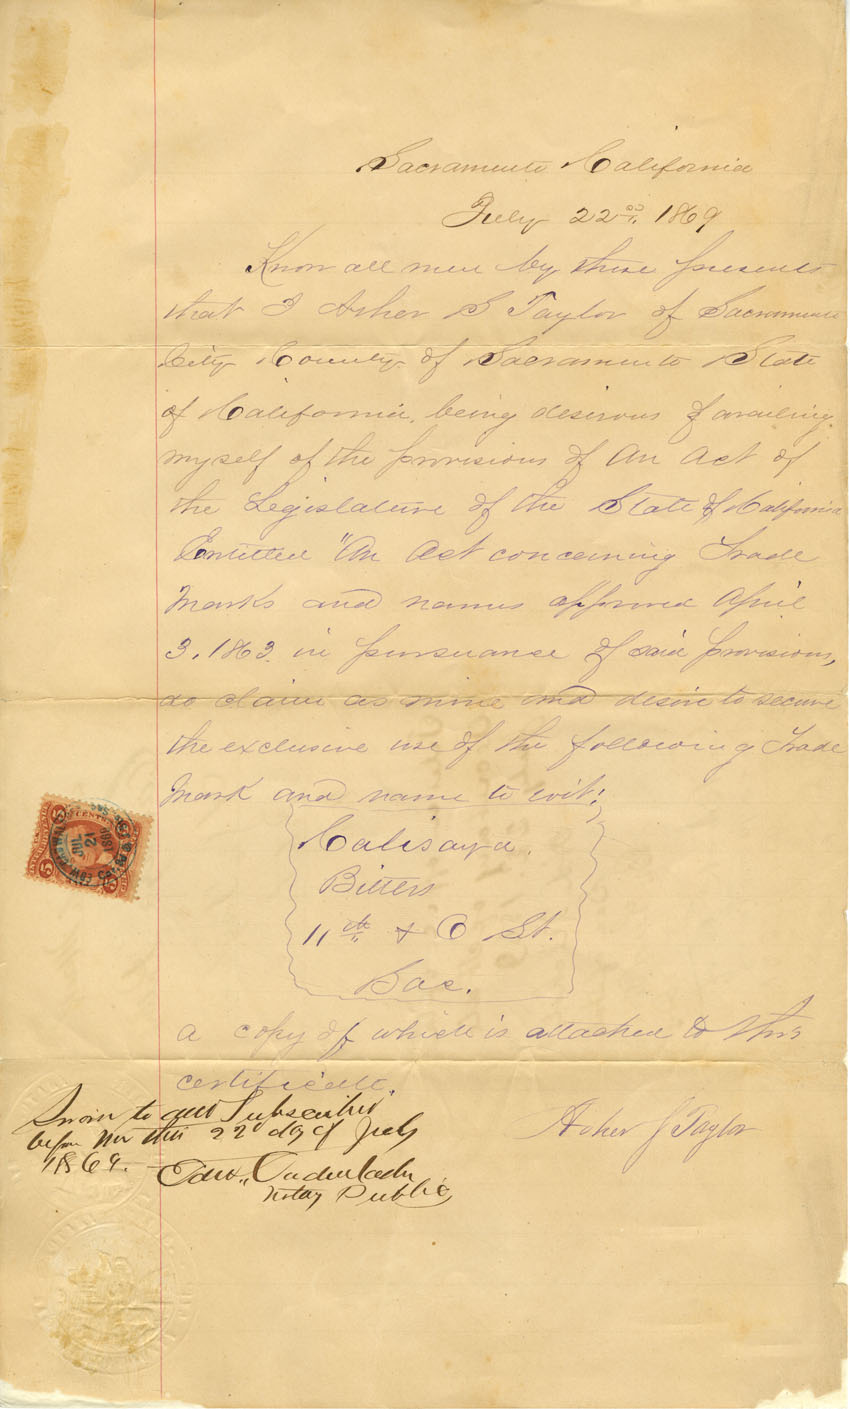 Sacramento California
July 22nd 1869
Know all men by these presents
that I Asher S Taylor of Sacramento
City County of Sacramento State
of California, being desirous of availing
myself of the provisions of An Act of
the Legislature of the State of California
Entitled "An Act concerning Trade
Marks and names approved April
3. 1863. in pursuance of said provisions,
do claim as mine and desire to secure
the exclusive use of the following Trade
Mark and name to wit:
Calisaya
Bitters
11th & C St.
Sac.
a copy of which is attached to this
certificate.
Asher S Taylor
Sworn to and Subscribed
before me this 22d day of July
1869.
Edw.
Notary Public
5 CENTS 5
JUL
21
1869